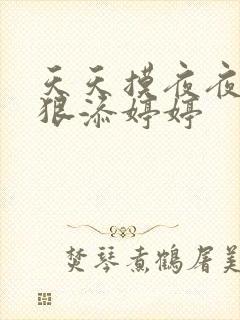 天天摸夜夜
狠添婷婷
焚琴煮鹤屠美